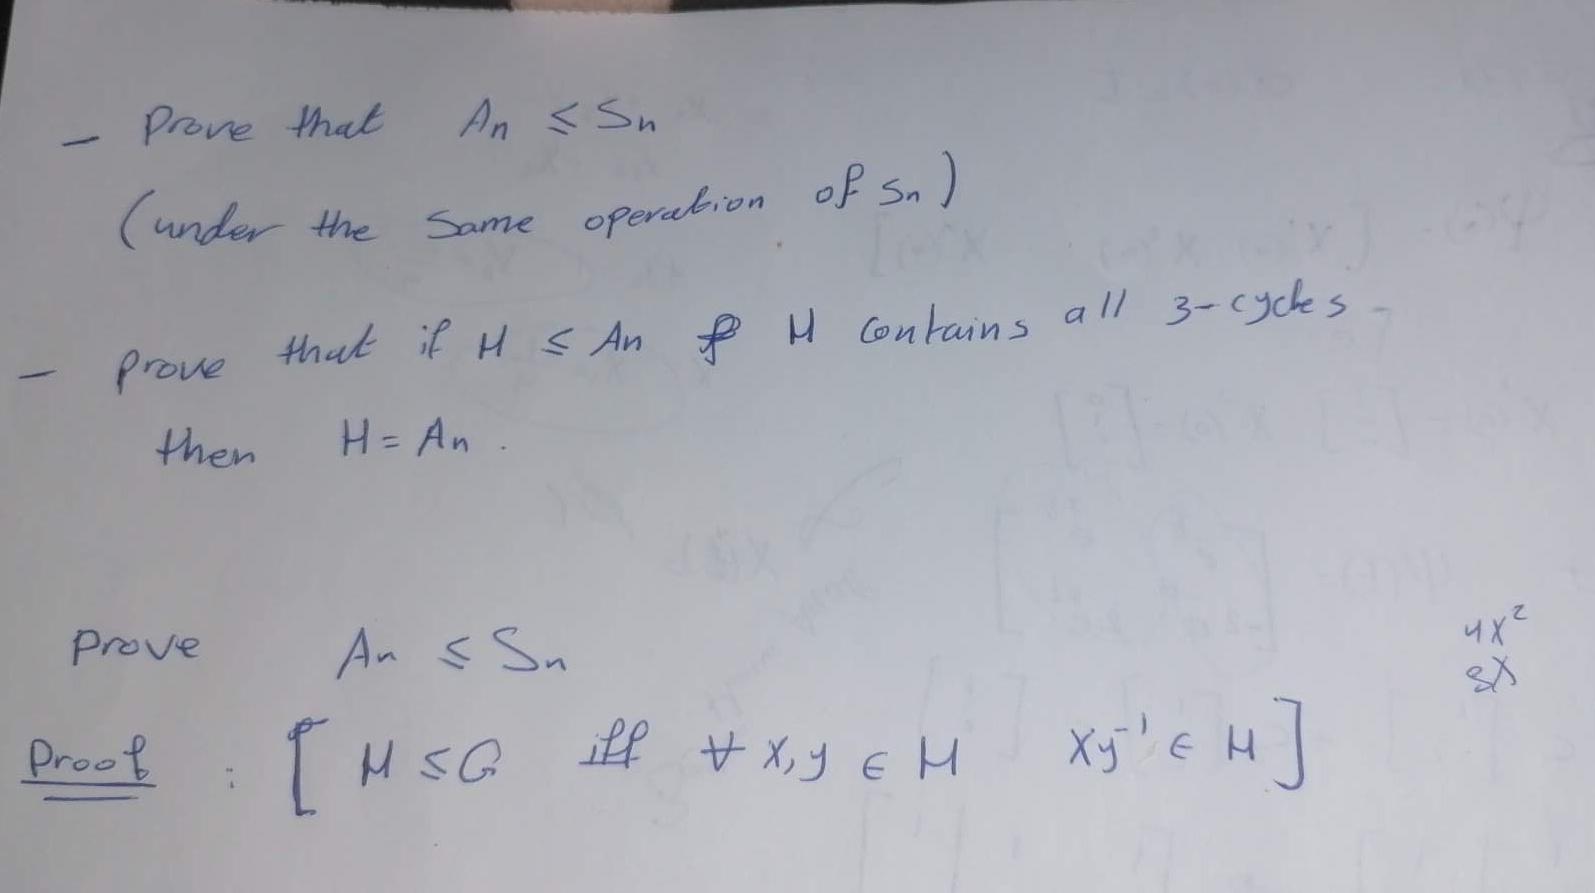 - Prove that An ≤ Sn
(under the same operation of Sn)
- Prove that if H ≤ An & H contains all 3-cycles -
then H = An .
Prove An ≤ Sn
4X²
8X
Proof : [ H ≤ G iff ∀ x,y ∈ H xy⁻¹ ∈ H ]